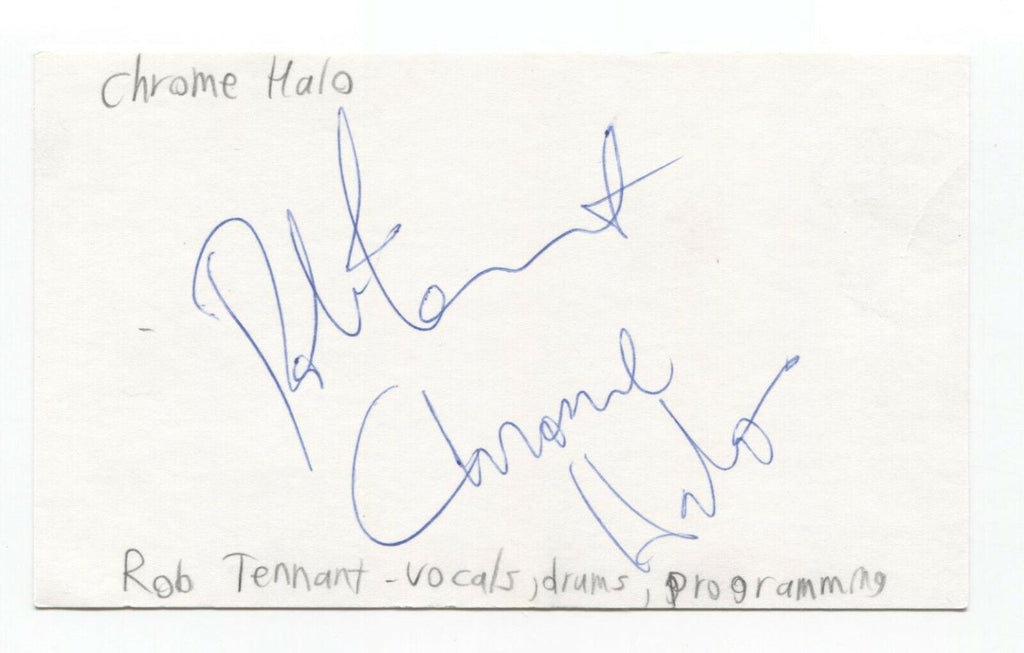 Chrome Halo
Rob Tennant
Chrome
Halo
Rob Tennant - vocals, drums, programming